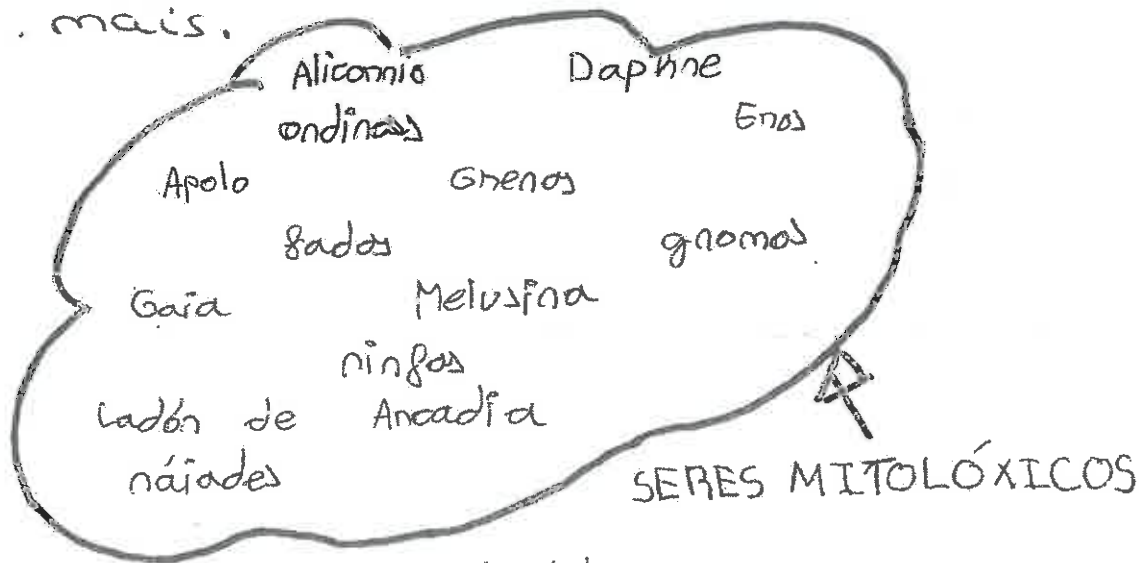 . mais.
Alicornio Daphne
ondinas Eros
Apolo
fadas gnomos
Gaia Melusina
ninfas
Ladón de Arcadia
náiades
SERES MITOLÓXICOS